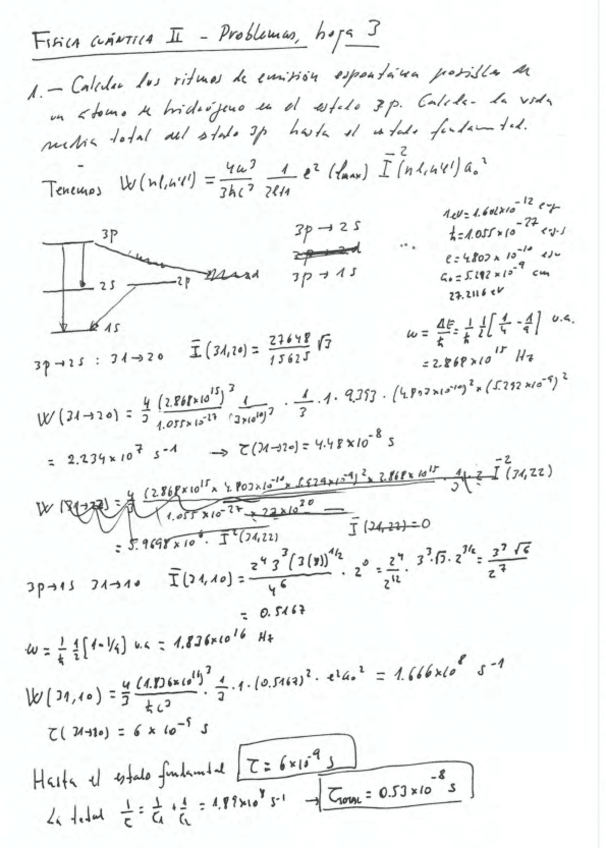 FISICA CUÁNTICA II - Problemas, hoja 3
1.- Calcular los ritmos de emisión espontánea posibles de
un átomo de hidrógeno en el estado 3p. Calcular la vida
media total del estado 3p hasta el estado fundamental.
Tenemos W(nl,n'l') = 4ω³/3ħc³ 1/2l+1 e² (l_max) Ī²(nl,n'l') a₀²
3p
2s 2p
1s
3p → 2s
3p → 1s
...
1eV = 1.602×10⁻¹² erg
ħ = 1.055×10⁻²⁷ erg·s
e = 4.803×10⁻¹⁰ esu
a₀ = 5.292×10⁻⁹ cm
27.2116 eV
3p→2s : 31→20 Ī(31,20) = 27648/15625 √3
ω = ΔE/ħ = 1/ħ 1/2 [1/4 - 1/9] u.a.
= 2.868×10¹⁵ Hz
W(31→20) = 4/3 (2.868×10¹⁵)³/1.055×10⁻²⁷ 1/(3×10¹⁰)³ · 1/3 · 1 · 9.393 · (4.803×10⁻¹⁰)² × (5.292×10⁻⁹)²
= 2.234×10⁷ s⁻¹ → τ(31→20) = 4.48×10⁻⁸ s
= 5.9698×10⁶ · Ī²(31,22)
Ī(31,22) = 0
3p→1s 31→10 Ī(31,10) = 2⁴ 3³ (3(8))^1/2 / 4⁶ · 2⁰ = 2⁴/2¹² · 3³·√3·2^3/2 = 3³ √6/2⁷
= 0.5167
ω = 1/ħ 1/2 [1-1/9] u.a = 1.836×10¹⁶ Hz
W(31,10) = 4/3 (1.836×10¹⁶)³/ħc³ · 1/3 · 1 · (0.5167)² · e²a₀² = 1.666×10⁸ s⁻¹
τ(31→10) = 6×10⁻⁹ s
Hasta el estado fundamental τ = 6×10⁻⁹ s
La total 1/τ = 1/τ₁ + 1/τ₂ = 1.89×10⁸ s⁻¹ → τ_TOTAL = 0.53×10⁻⁸ s